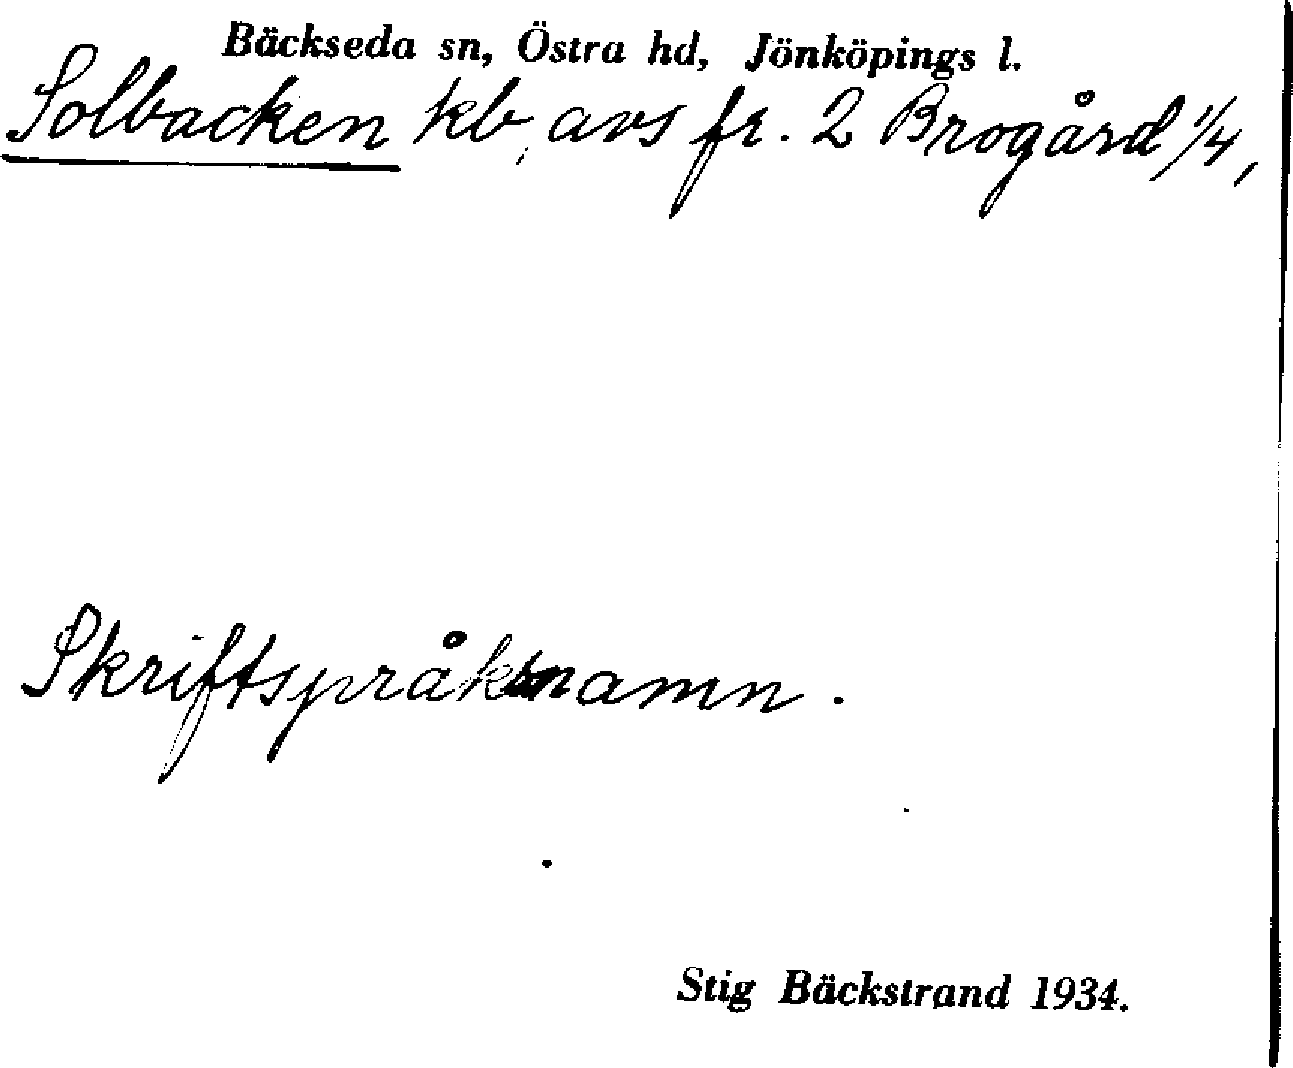 Bäckseda sn, Östra hd, Jönköpings l.
Solbacken kb, avs fr. 2 Brogård 1/4,
Skriftspråksnamn.
Stig Bäckstrand 1934.